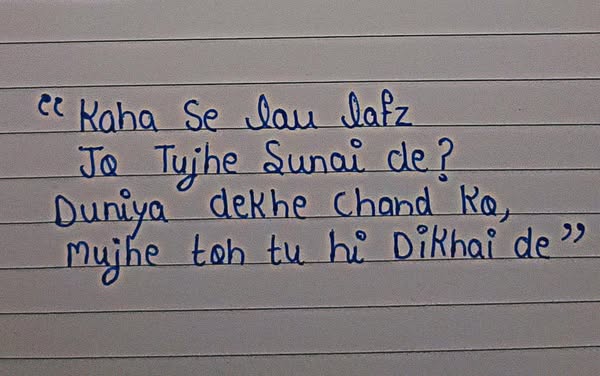 “Kaha Se lau lafz
Jo Tujhe Sunai de?
Duniya dekhe Chand Ko,
Mujhe toh tu hi Dikhai de”